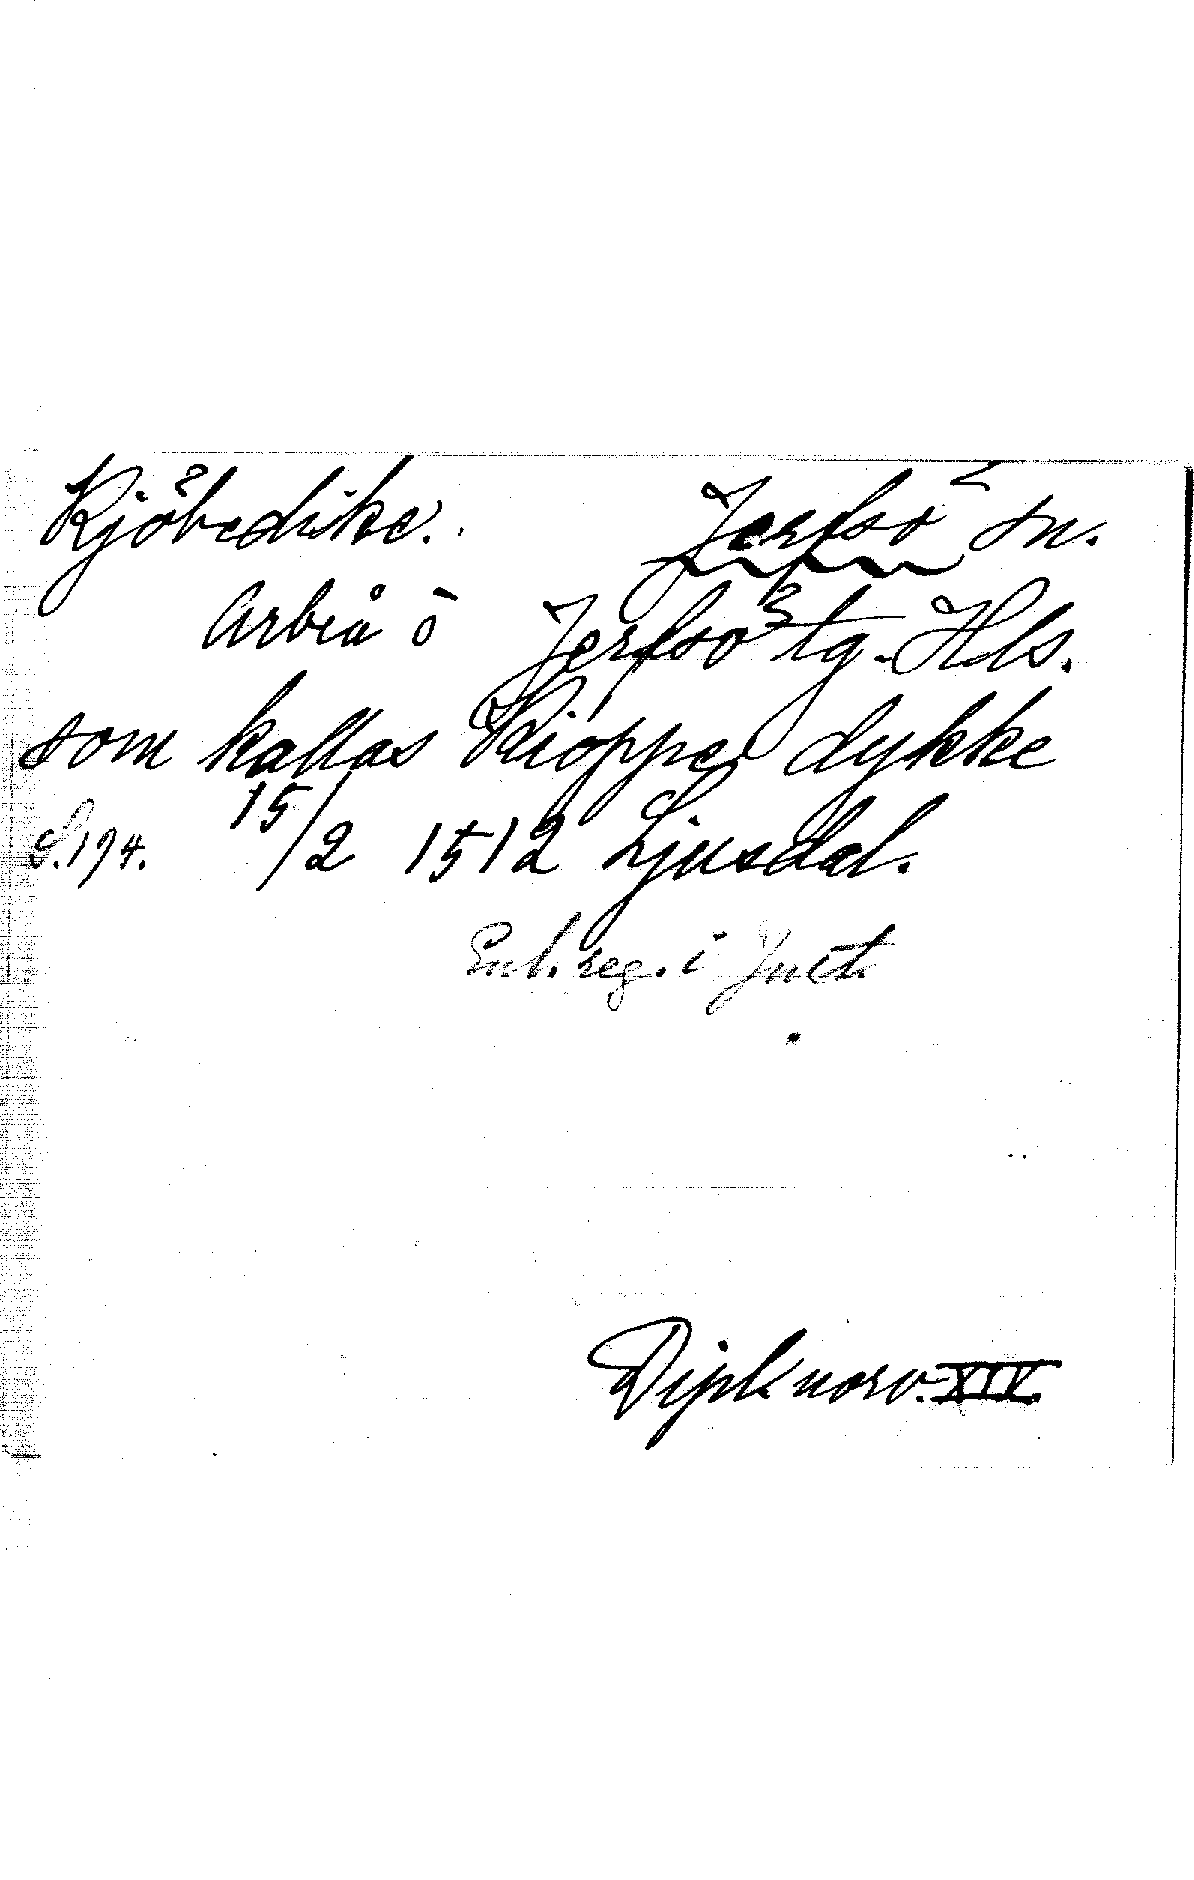 Kjöbedike. Jerfsö sn.
Arbrå ö Jerfsö tg. Hls.
som kallas Kiöppe dykke
S. 194. 15/2 1512 Ljusdal.
Enl. reg. i
Dipl. norv. XIV.